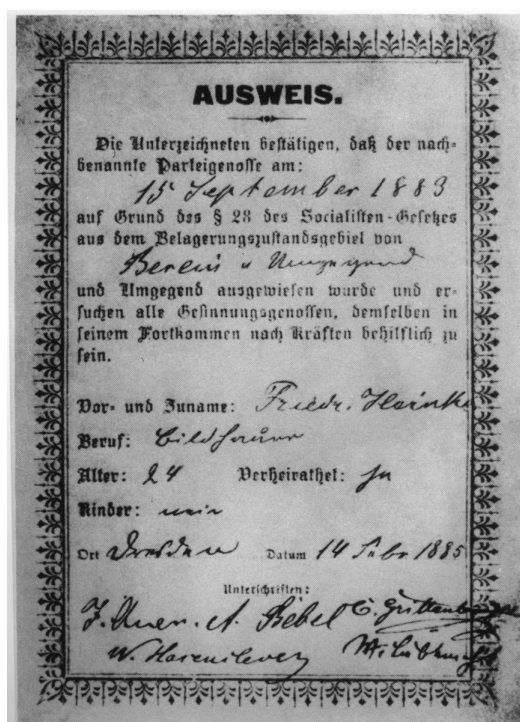 AUSWEIS.
Die Unterzeichneten bestätigen, daß der nach-
benannte Parteigenosse am:
15 September 1883
auf Grund des § 28 des Socialisten-Gesetzes
aus dem Belagerungszustandsgebiel von
Berlin u Umgegend
und Umgegend ausgewiesen wurde und er-
suchen alle Gesinnungsgenossen, demselben in
seinem Fortkommen nach Kräften behilflich zu
sein.
Vor- und Zuname: Friedr. Heinke
Beruf: Bildhauer
Alter: 24 Verheirathet: ja
Kinder: nein
Ort Dresden Datum 14 Febr 1885
Unterschriften:
I. Auer. A. Bebel C. Grillenberger
W. Hasenclever W. Liebknecht